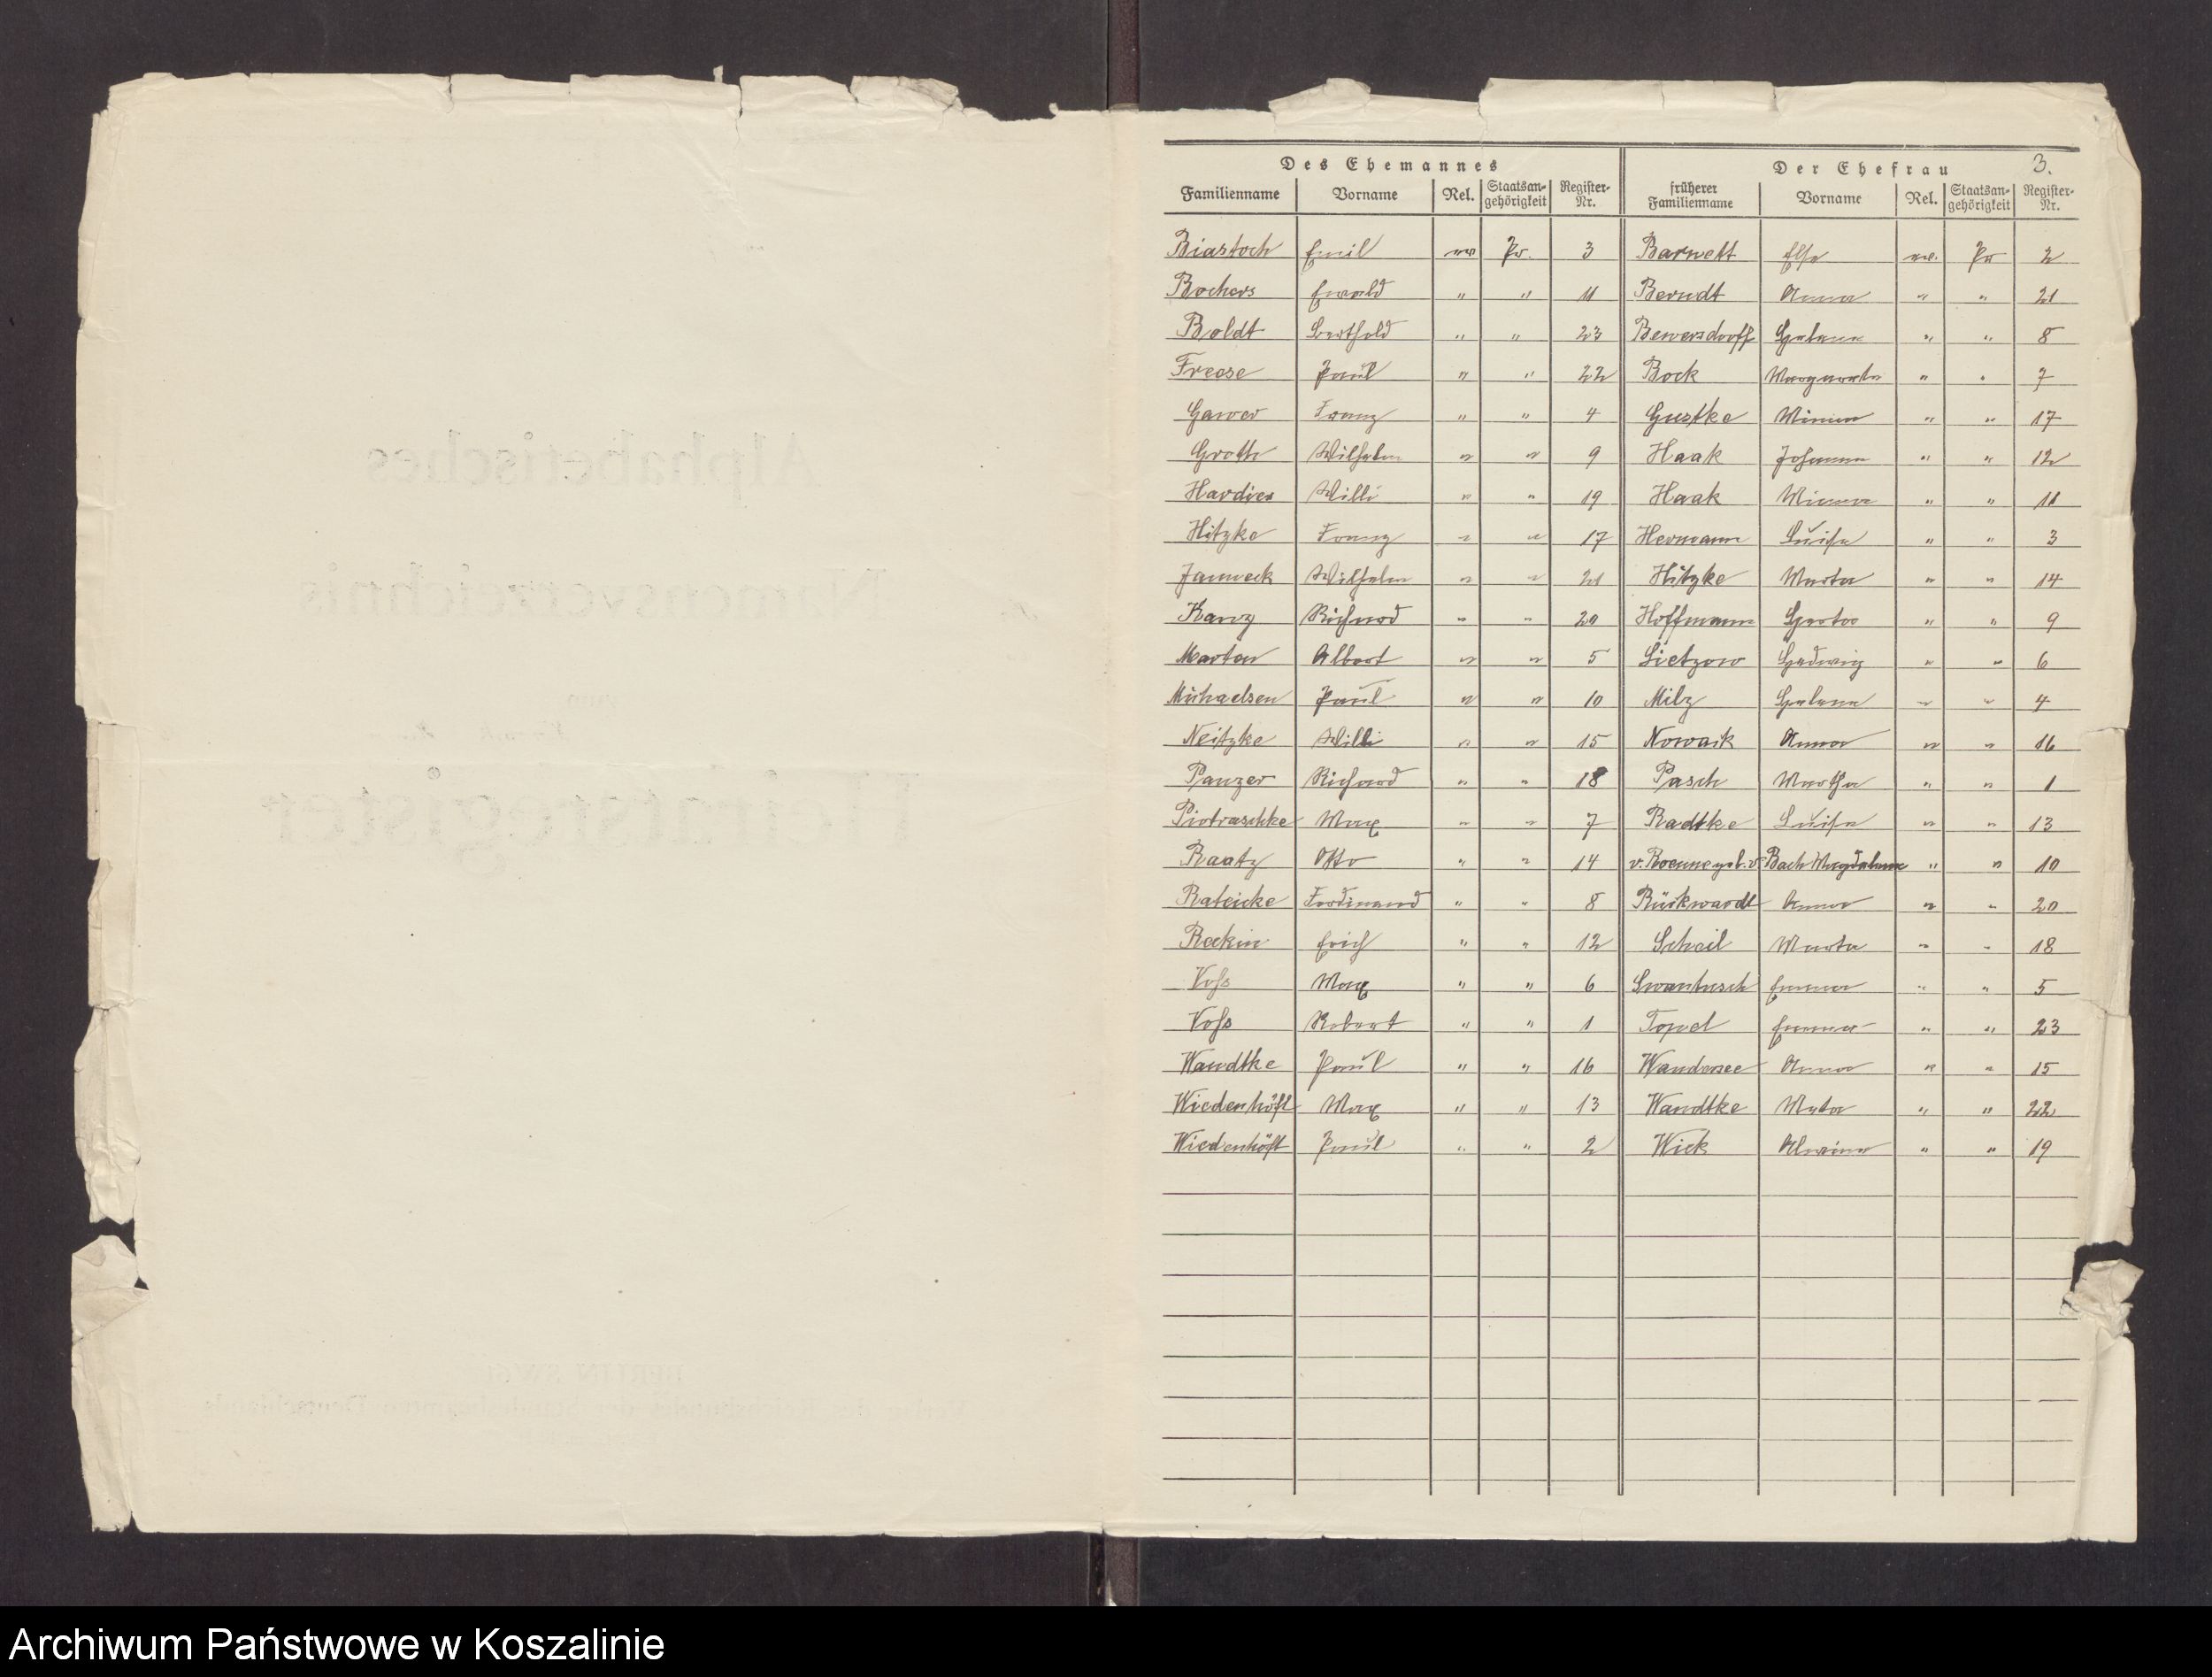 3.
Des Ehemannes Der Ehefrau
Familienname Vorname Rel. Staatsan-gehörigkeit Register-Nr. früherer Familienname Vorname Rel. Staatsan-gehörigkeit Register-Nr.
Biastoch Emil ev. Pr. 3 Barnett Else ev. Pr. 2
Bochers Ewald " " 11 Berndt Anna " " 21
Boldt Berthold " " 23 Bewersdorff Helene " " 8
Freese Paul " " 22 Bock Margarete " " 7
Franz " " 4 Gustke Minna " " 17
Groth Wilhelm " " 9 Haak Johanna " " 12
Hardies Willi " " 19 Haak Minna " " 11
Hitzke Franz " " 17 Hermann Luise " " 3
Janneck Wilhelm " " 21 Hitzke Marta " " 14
Richard " " 20 Hoffmann Herta " " 9
Albert " " 5 Lietzow Hedwig " " 6
Michaelsen Paul " " 10 Milz Helene " " 4
Neitzke Willi " " 15 Nowack Anna " " 16
Panzer Richard " " 18 Pasch Martha " " 1
Piotraschke Max " " 7 Radtke Luise " " 13
Raatz Otto " " 14 v. Roenne geb. v. Bach Magdalene " " 10
Rateicke Ferdinand " " 8 Rückwardt Anna " " 20
Reckin Erich " " 12 Scheil Marta " " 18
Voß Max " " 6 Swantusch Emma " " 5
Voß Robert " " 1 Topel Emma " " 23
Wandtke Paul " " 16 Wandersee Anna " " 15
Wiedenhöft Max " " 13 Wandtke Meta " " 22
Wiedenhöft Paul " " 2 Wick Alwine " " 19
Alphabetisches
Namensverzeichnis
zum
Heiratsregister
BERLIN SW 61
Verlag des Reichsbundes der Standesbeamten Deutschlands
Archiwum Państwowe w Koszalinie